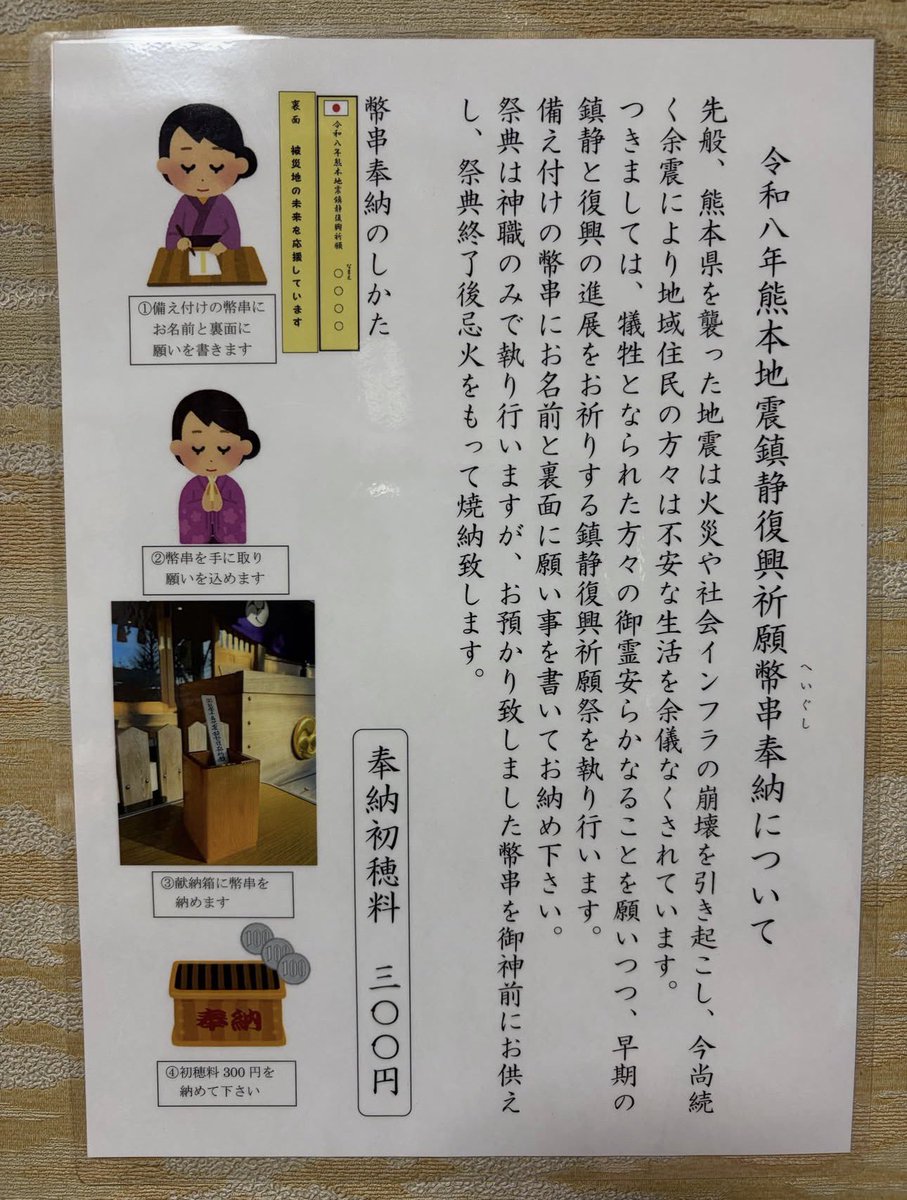 令和八年熊本地震鎮静復興祈願幣串奉納について
へいぐし
先般、熊本県を襲った地震は火災や社会インフラの崩壊を引き起こし、今尚続
く余震により地域住民の方々は不安な生活を余儀なくされています。
つきましては、犠牲となられた方々の御霊安らかなることを願いつつ、早期の
鎮静と復興の進展をお祈りする鎮静復興祈願祭を執り行います。
備え付けの幣串にお名前と裏面に願い事を書いてお納め下さい。
祭典は神職のみで執り行いますが、お預かり致しました幣串を御神前にお供え
し、祭典終了後忌火をもって焼納致します。
奉納初穂料 三〇〇円
幣串奉納のしかた
令和八年熊本地震鎮静復興祈願 〇〇〇〇
なまえ
裏面 被災地の未来を応援しています
①備え付けの幣串に
お名前と裏面に
願いを書きます
②幣串を手に取り
願いを込めます
③献納箱に幣串を
納めます
100
100
100
奉納
④初穂料300円を
納めて下さい